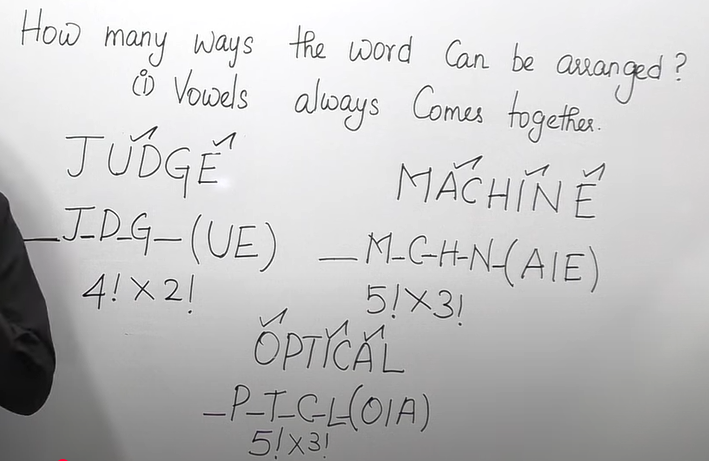 How many ways the word Can be arranged?
(i) Vowels always Comes together.
JUDGE
_J_D_G_(UE)
4! X 2!
MACHINE
_M_C_H_N_(AIE)
5! X 3!
OPTICAL
_P_T_C_L(OIA)
5! X 3!